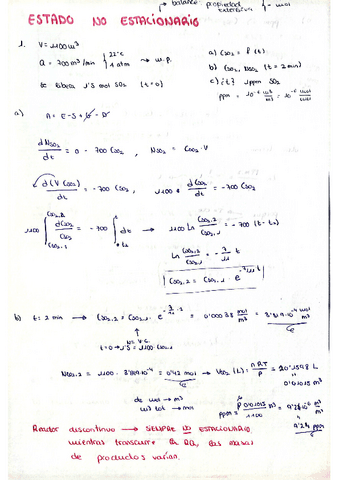 → balance: propiedad extensiva { - mol
ESTADO NO ESTACIONARIO
1. V = 1100 m³
Q = 700 m³/min { 22ºC 1 atm → m.p.
a) C_SO2 = f (t).
b) C_SO2, N_SO2 (t = 2 min)
Se libera 1'5 mol SO2 (t = 0)
c) ¿t? 1 ppm SO2
ppm = 10⁻⁶ m³/m³ = 10⁻⁶ mol/mol
a) A = E - S + G - D
dN_SO2/dt = 0 - 700 C_SO2 , N_SO2 = C_SO2 · V
d(V C_SO2)/dt = -700 C_SO2 , 1100 · dC_SO2/dt = -700 C_SO2
1100 ∫ dC_SO2/C_SO2 = -700 ∫ dt → 1100 Ln C_SO2,2/C_SO2,1 = -700 (t - t₀)
Ln C_SO2,2/C_SO2,1 = - 7/11 t
C_SO2,2 = C_SO2,1 · e^(-7/11 t)
b) t = 2 min → C_SO2,2 = C_SO2,1 · e^(-7/11 · 2) = 0'00038 mol/m³ = 3'819·10⁻⁴ mol/m³
N = V·C
t = 0 → 1'5 = 1100 · C_SO2,1
N_SO2,2 = 1100 · 3'819·10⁻⁴ = 0'42 mol → V_SO2 (L) = nRT/P = 20'1598 L
0'01015 m³
de uno → m³
tot → mol
ppm = 0'01015 m³/1100 = 9'23·10⁻⁶ m³/m³
9'24 ppm
Reactor discontinuo → SIEMPRE NO ESTACIONARIO
mientras transcurre la RQ, las masas
de productos varían.